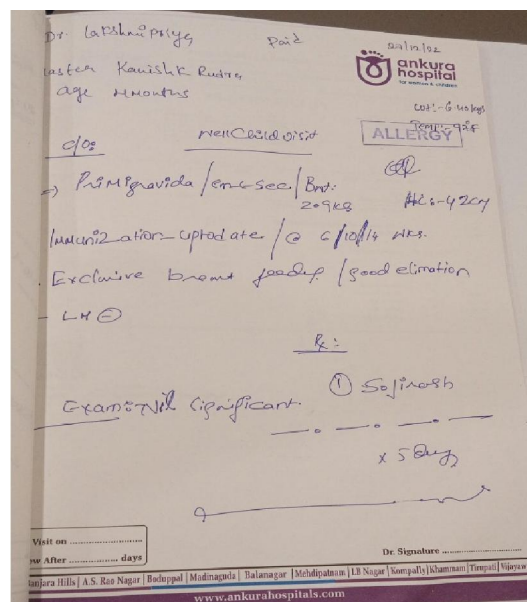 Dr. Lakshmi Priya
Paid
ankura
hospital
for women & children
Master Kanishk Rudra
age 4 months
wt :- 6.40 kgs
ALLERGY
c/o:
Well Child Visit
=> Primigravida / em c sec / Bwt:
2.9 kg
Hc :- 42 cm
Immunization uptodate / @ 6/10/14 wks.
- Exclusive breast feeding / good elimation
- LM ⊖
Rx :
Exam: Nil Significant.
①
x 5 days
Visit on
ew After days
Dr. Signature
Banjara Hills | A.S. Rao Nagar | Boduppal | Madinaguda | Balanagar | Mehdipatnam | LB Nagar | Kompally | Khammam | Tirupati | Vijayaw
www.ankurahospitals.com